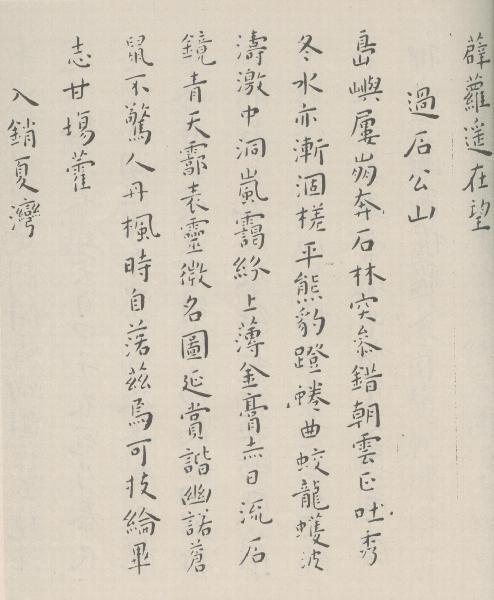 薜蘿遥在望
過石公山
島嶼屢崩奔石林突參錯朝雲正吐秀
冬水亦漸涸槎平熊豹蹬蜷曲蛟龍蠖波
濤激中洞嵐靄紛上薄金膏赤日流石
鏡青天霩表靈徵名圖延賞諧幽諾蒼
鼠不驚人丹楓時自落茲焉可投綸畢
志甘場藿
入銷夏灣